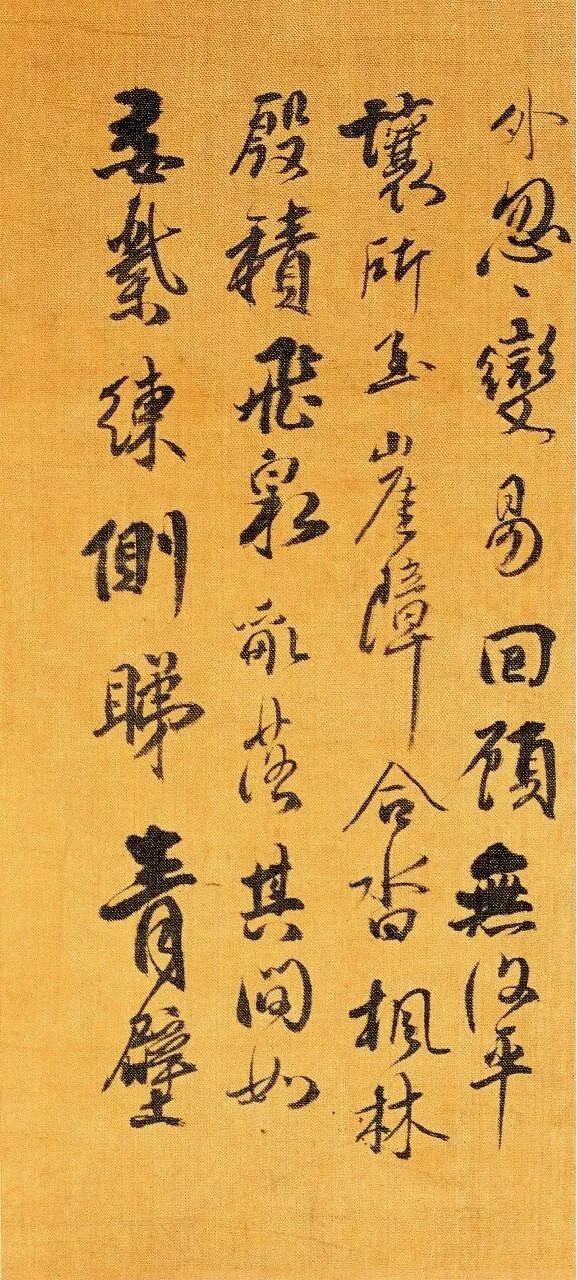 外忽〻變易回顧無復平
壤所至崖障合沓楓林
殷積飛泉亂落其間如
練側睇青壁